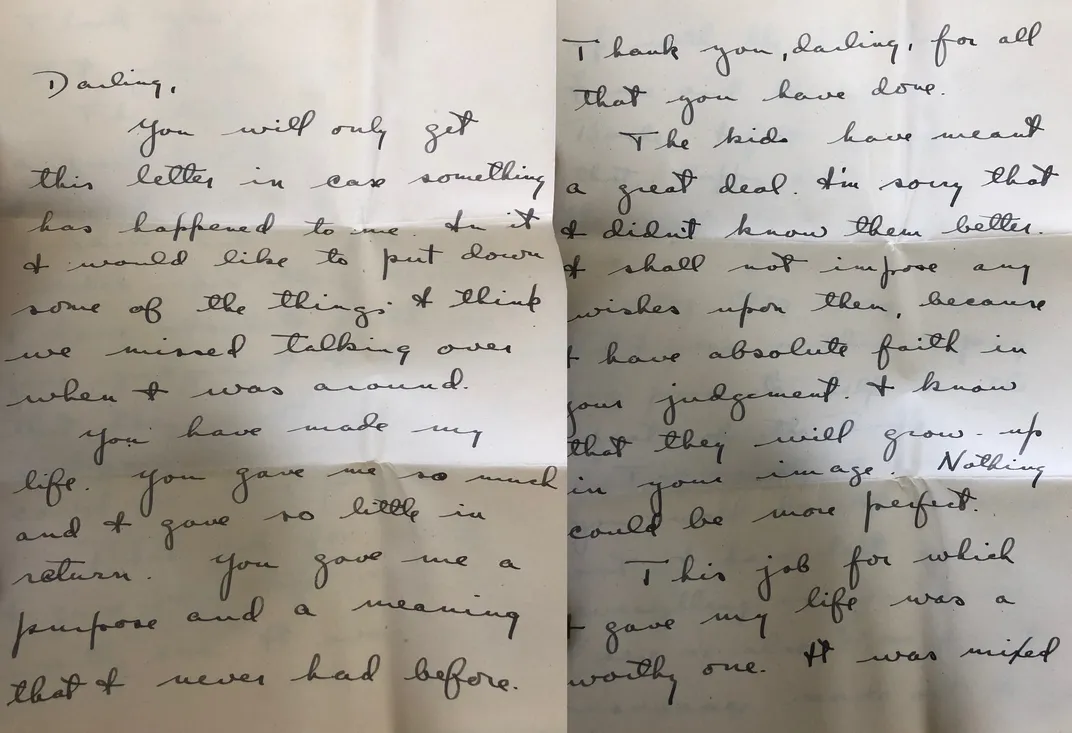 Darling,
You will only get
this letter in case something
has happened to me. In it
I would like to put down
some of the things I think
we missed talking over
when I was around.
You have made my
life. You gave me so much
and I gave so little in
return. You gave me a
purpose and a meaning
that I never had before.
Thank you, darling, for all
that you have done.
The kids have meant
a great deal. I'm sorry that
I didn't know them better.
I shall not impose any
wishes upon them, because
I have absolute faith in
your judgement. I know
that they will grow up
in your image. Nothing
could be more perfect.
This job for which
I gave my life was a
worthy one. It was mixed